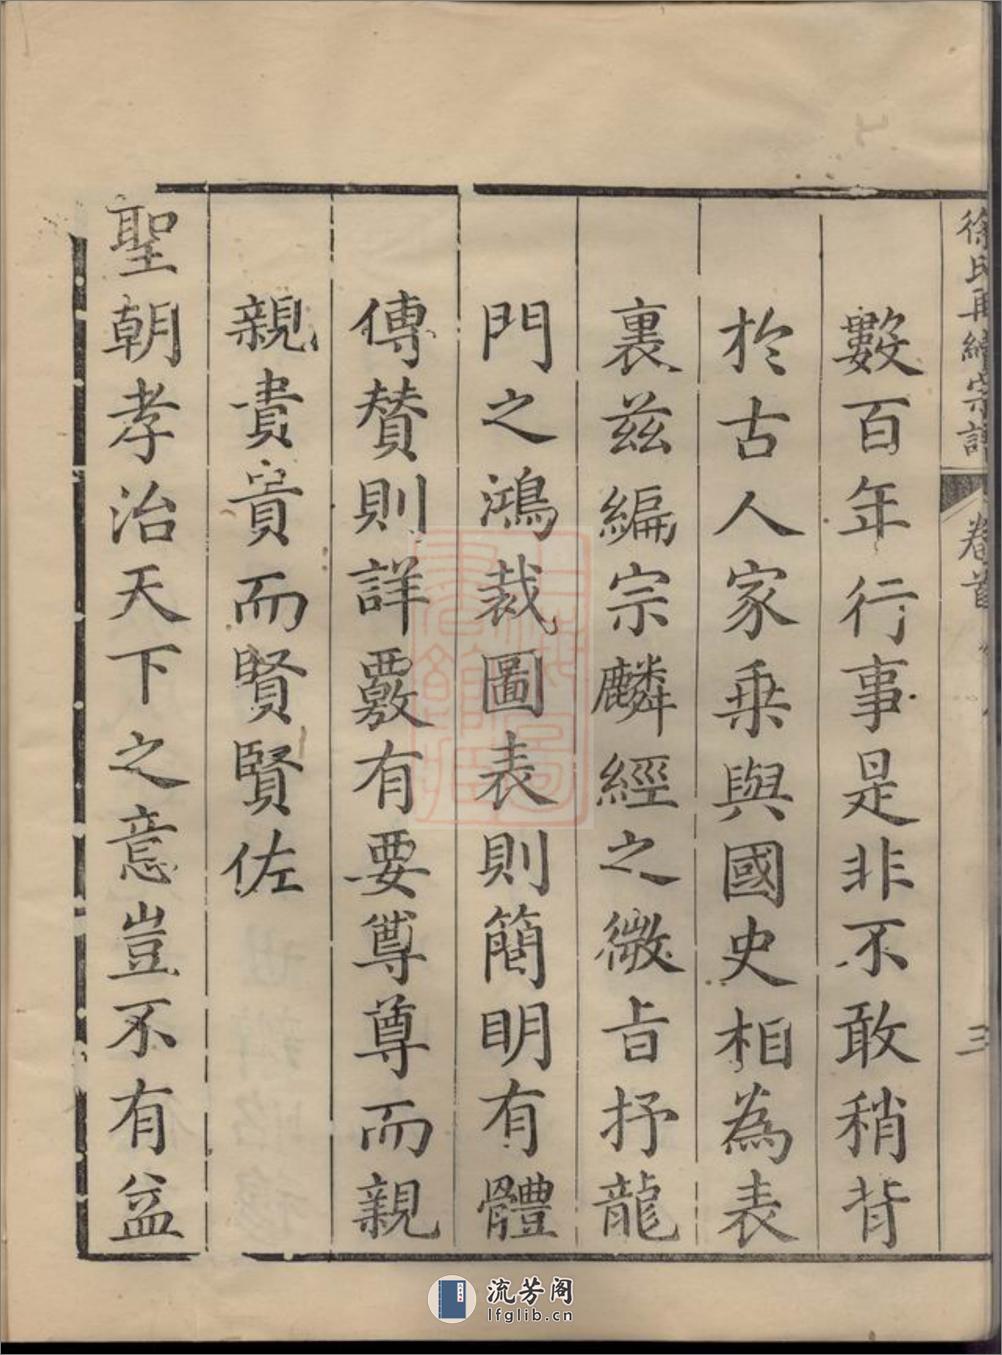 徐氏再續宗譜
卷首
三
數百年行事是非不敢稍背
於古人家乗與國史相為表
裏茲編宗麟經之微旨抒龍
門之鴻裁圖表則簡明有體
傳賛則詳覈有要尊尊而親
親貴貴而賢賢佐
聖朝孝治天下之意豈不有益
流芳阁
lfglib.cn